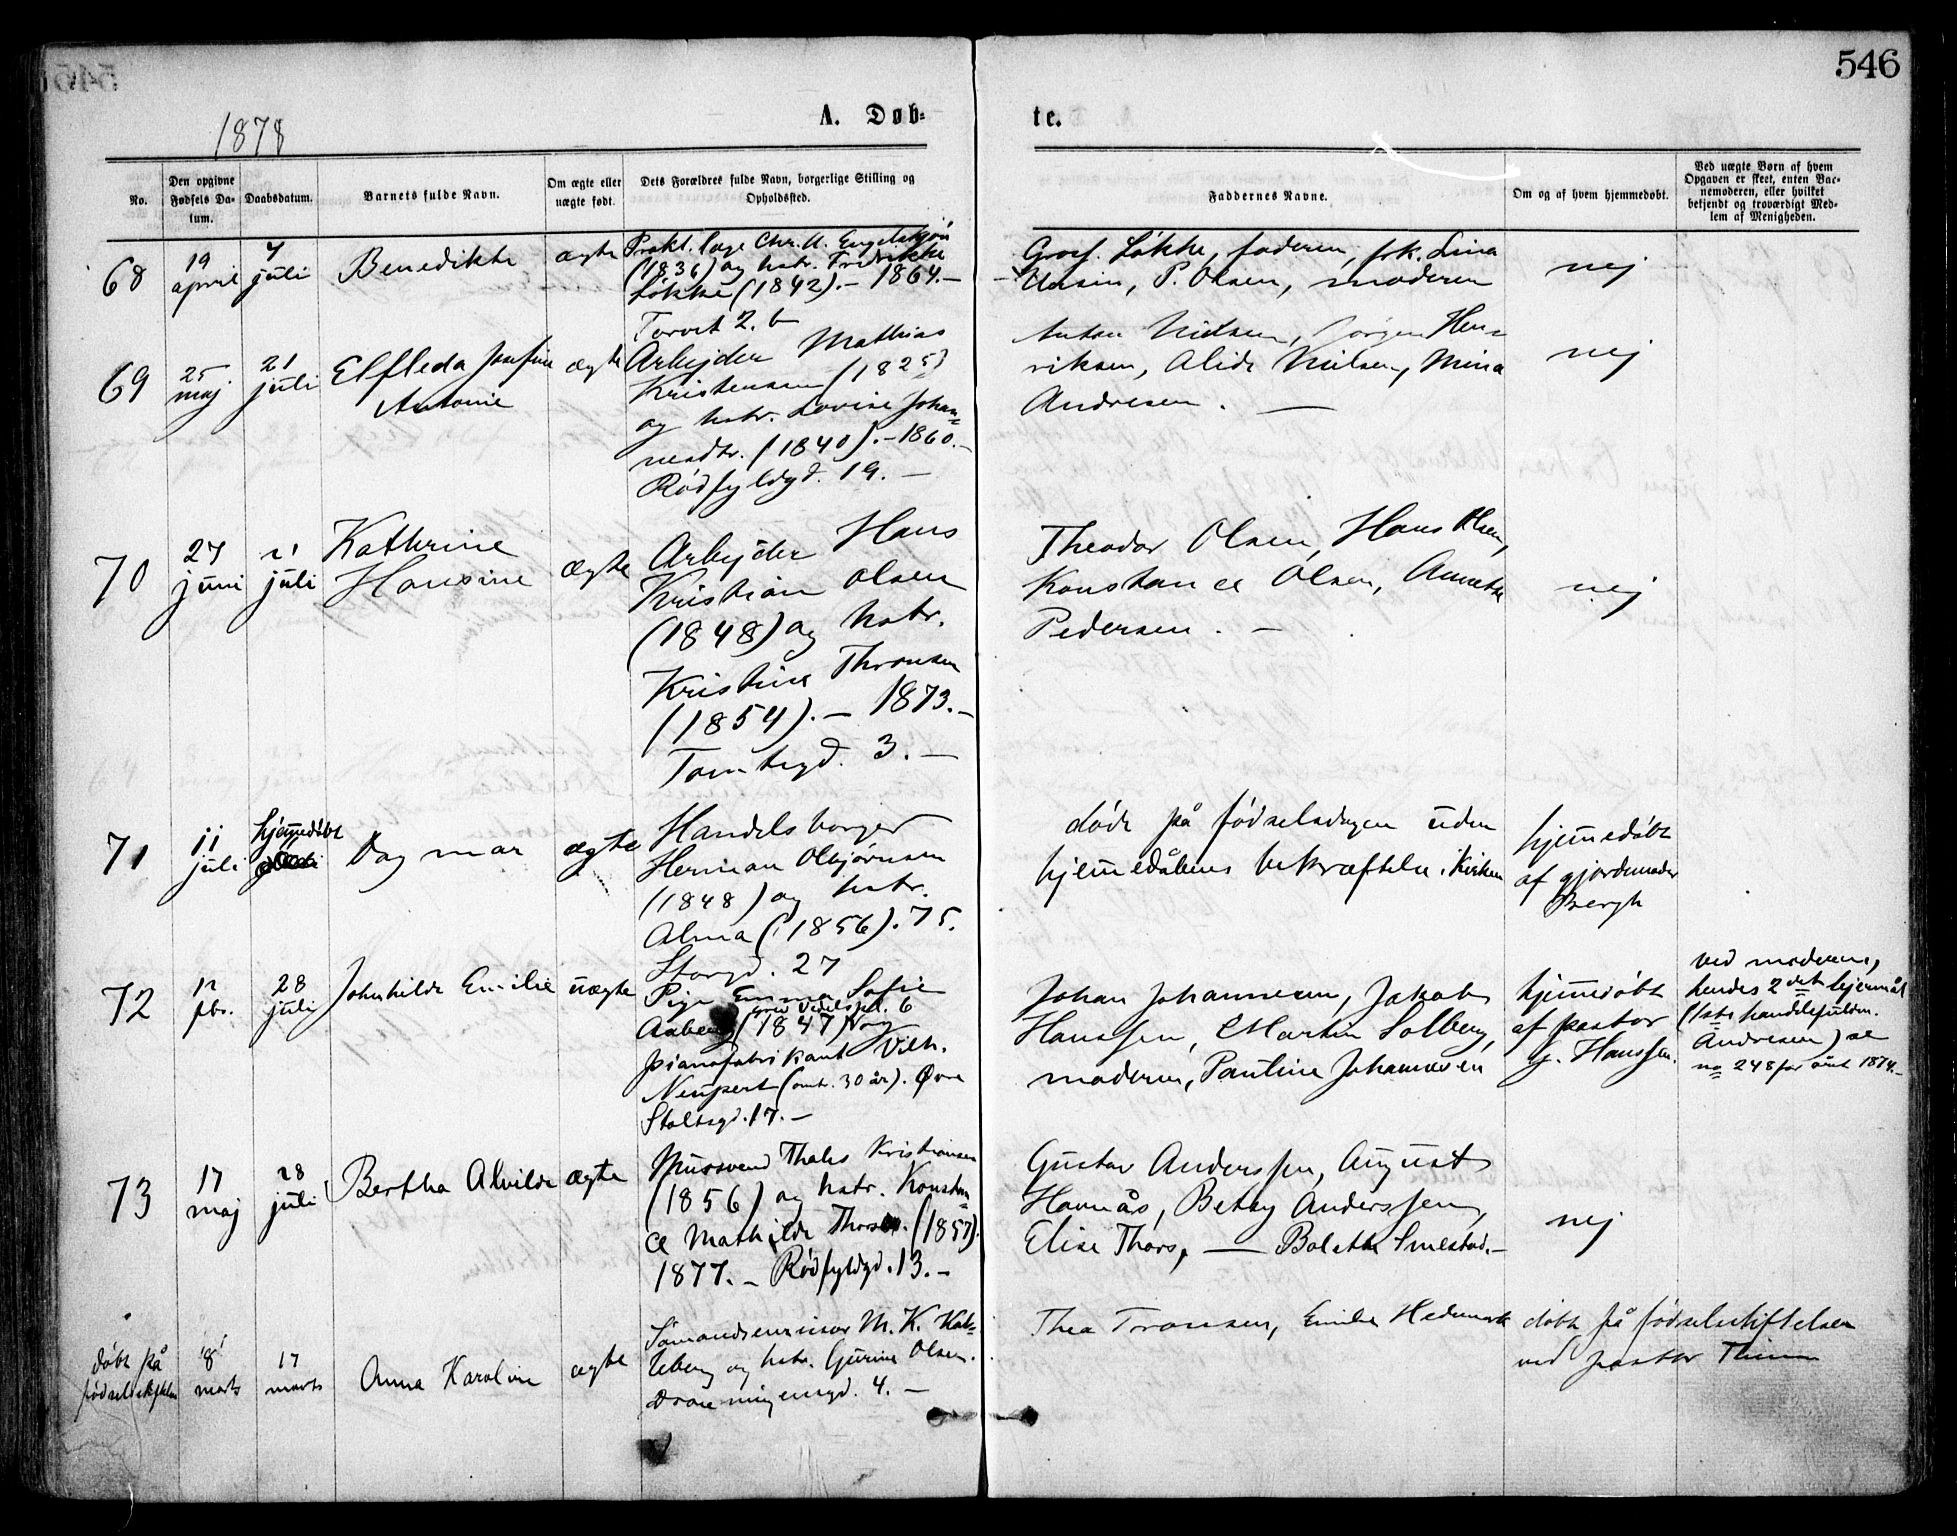 546
1878
A. Døb-
te.
No.
Den opgivne
Fødsels Da-
tum.
Daabsdatum.
Barnets fulde Navn.
Om ægte eller
uægte født.
Dets Forældres fulde Navn, borgerlige Stilling og
Opholdssted.
Faddernes Navne.
Om og af hvem hjemmedøbt.
Ved uægte Børn af hvem
Opgaven er skeet, enten Bar-
nemoderen, eller hvilket
bekjendt og troværdigt Med-
lem af Menigheden.
68
19
april
7
juli
Benedikte
ægte
Prakt. læge Chr. A. Engelskjøn
(1836) og hstr. Fredrikke
Løkke (1842). – 1864. –
Torvet 2. b
Gros. Løkke, faderen, frk. Lina
P. Olsen, moderen
nej
69
25
maj
21
juli
Elfleda Josefine
Antonie
ægte
Arbejder Mathias
Kristensen (1825)
og hstr. Lovise Johan-
nesdtr. (1840). – 1860. –
Rødfyldgd. 19. –
Anton Nielsen, Jørgen Hen-
riksen, Alida Nielsen, Mina
Andresen. –
nej
70
27
juni
21
juli
Kathrine
Hansine
ægte
Arbejder Hans
Kristian Olsen
(1848) og hstr.
Kristine Thronsen
(1854). – 1873. –
Tomtegd. 3. –
Theodor Olsen, Hans Olsen,
Konstance Olsen, Annette
Pedersen. –
nej
71
11
juli
hjemmedøbt
Dagmar
ægte
Handelsborger
Herman Olbjørnsen
(1848) og hstr.
Alma (1856). 75.
Storgd. 27
døde på fødselsdagen uden
hjemmedåbens bekræftelse i kirken
hjemmedøbt
af gjordemoder
Bergh
72
12
fbr.
28
juli
Johnhilde Emilie
uægte
Pige Emma Sofie
Aaberg (1847) og
pianofabrikant Vilh.
Neupert (omt. 30 år). Øvre
Slottsgd. 17. –
Johan Johannesen, Jakob
Hanssen, Martin Solberg,
moderen, Pauline Johannesen
hjemmedøbt
af pastor
G. Hanssen.
ved moderen,
hendes 2det lejermål
(1ste handelsfuldm.
Andresen) se
no 248 for 1874. –
73
17
maj
28
juli
Bertha Alvilde
ægte
Mursvend Thales Kristiansen
(1856) og hstr. Konstan-
ce Mathilde Thorsen. (1857).
1877. – Rødfyldgd. 13. –
Gustav Anderssen, August
Havnås, Betsy Anderssen,
Elise Thors, – Bolette Smestad. –
nej
døbt på
fødselsstiftelsen
8
marts
17
marts
Anna Karoline
ægte
M. K. Kal-
leberg og hstr. Gurine Olsen.
Dronningensgd. 4. –
Thea Tronsen, Emilie Hedemark
døbt på fødselsstiftelsen
ved pastor Thinn